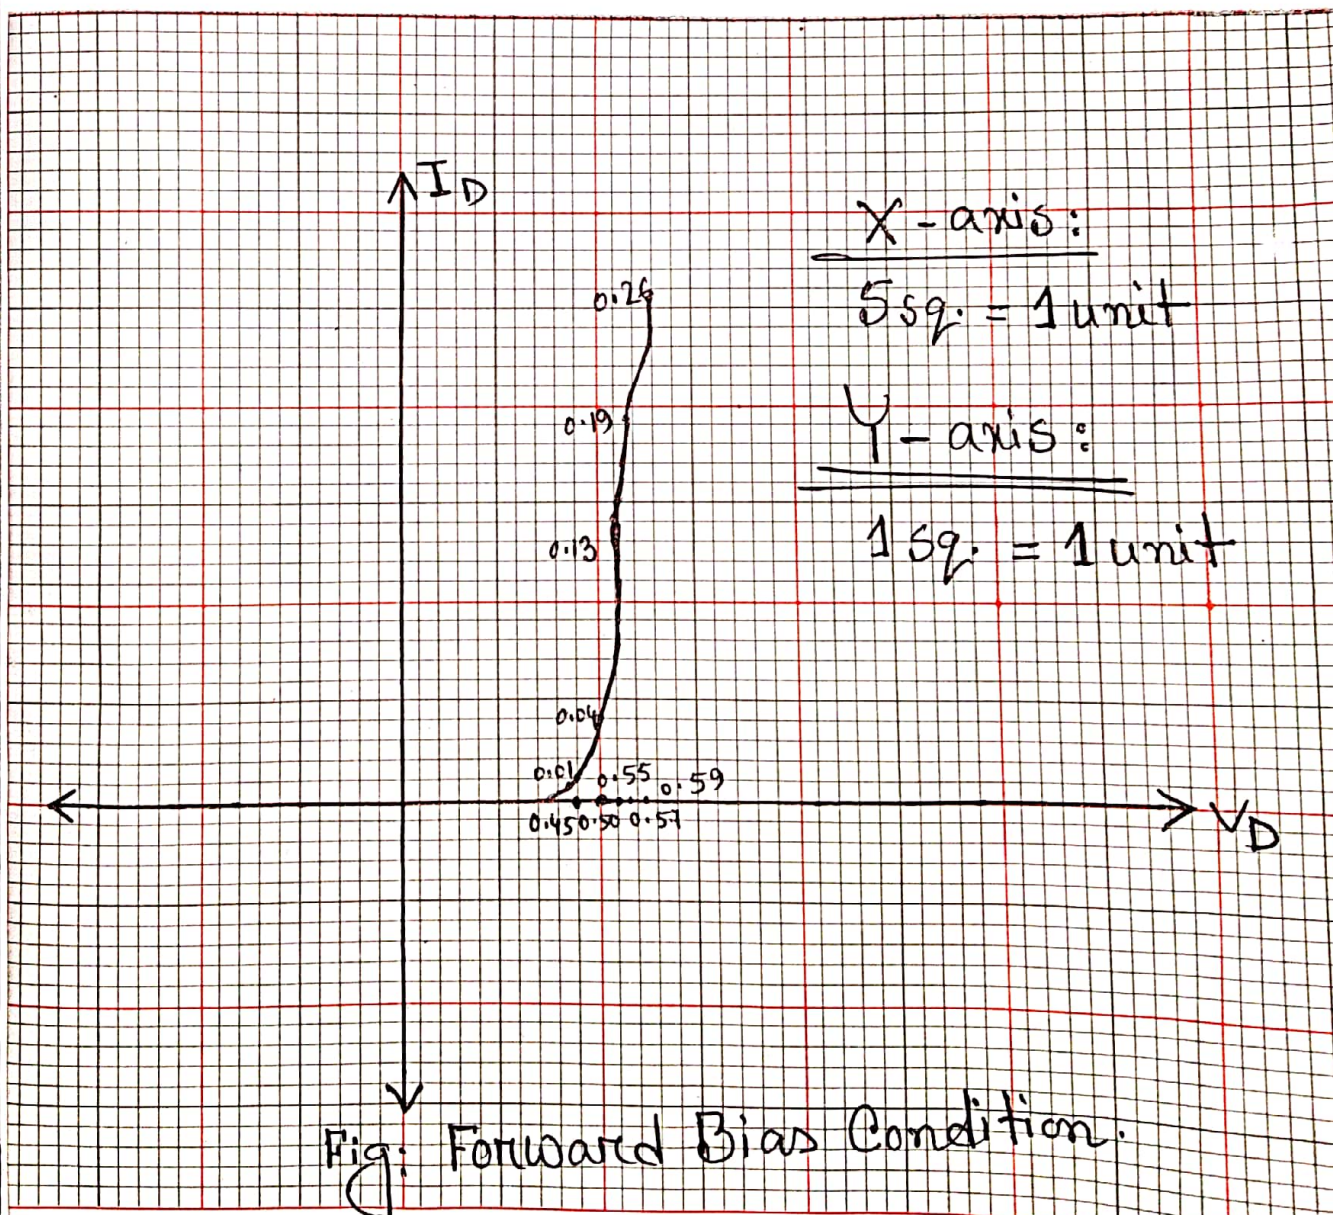 I D
X-axis:
5 sq. = 1 unit
0.26
Y-axis:
0.19
1 sq. = 1 unit
0.13
0.04
0.01 0.55 0.59
0.45 0.50 0.57
V D
Fig: Forward Bias Condition.